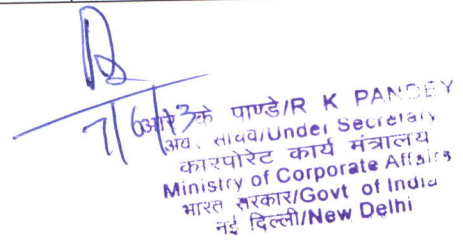 7/6/13
आर० के पाण्डे/R K PANDEY
अवर सचिव/Under Secretary
कारपोरेट कार्य मंत्रालय
Ministry of Corporate Affairs
भारत सरकार/Govt of India
नई दिल्ली/New Delhi